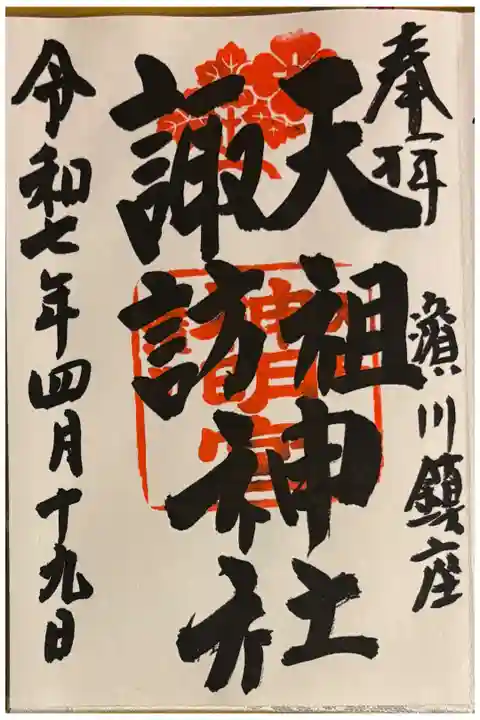 奉拝
濱川鎮座
天祖神社
諏訪神社
令和七年四月十九日